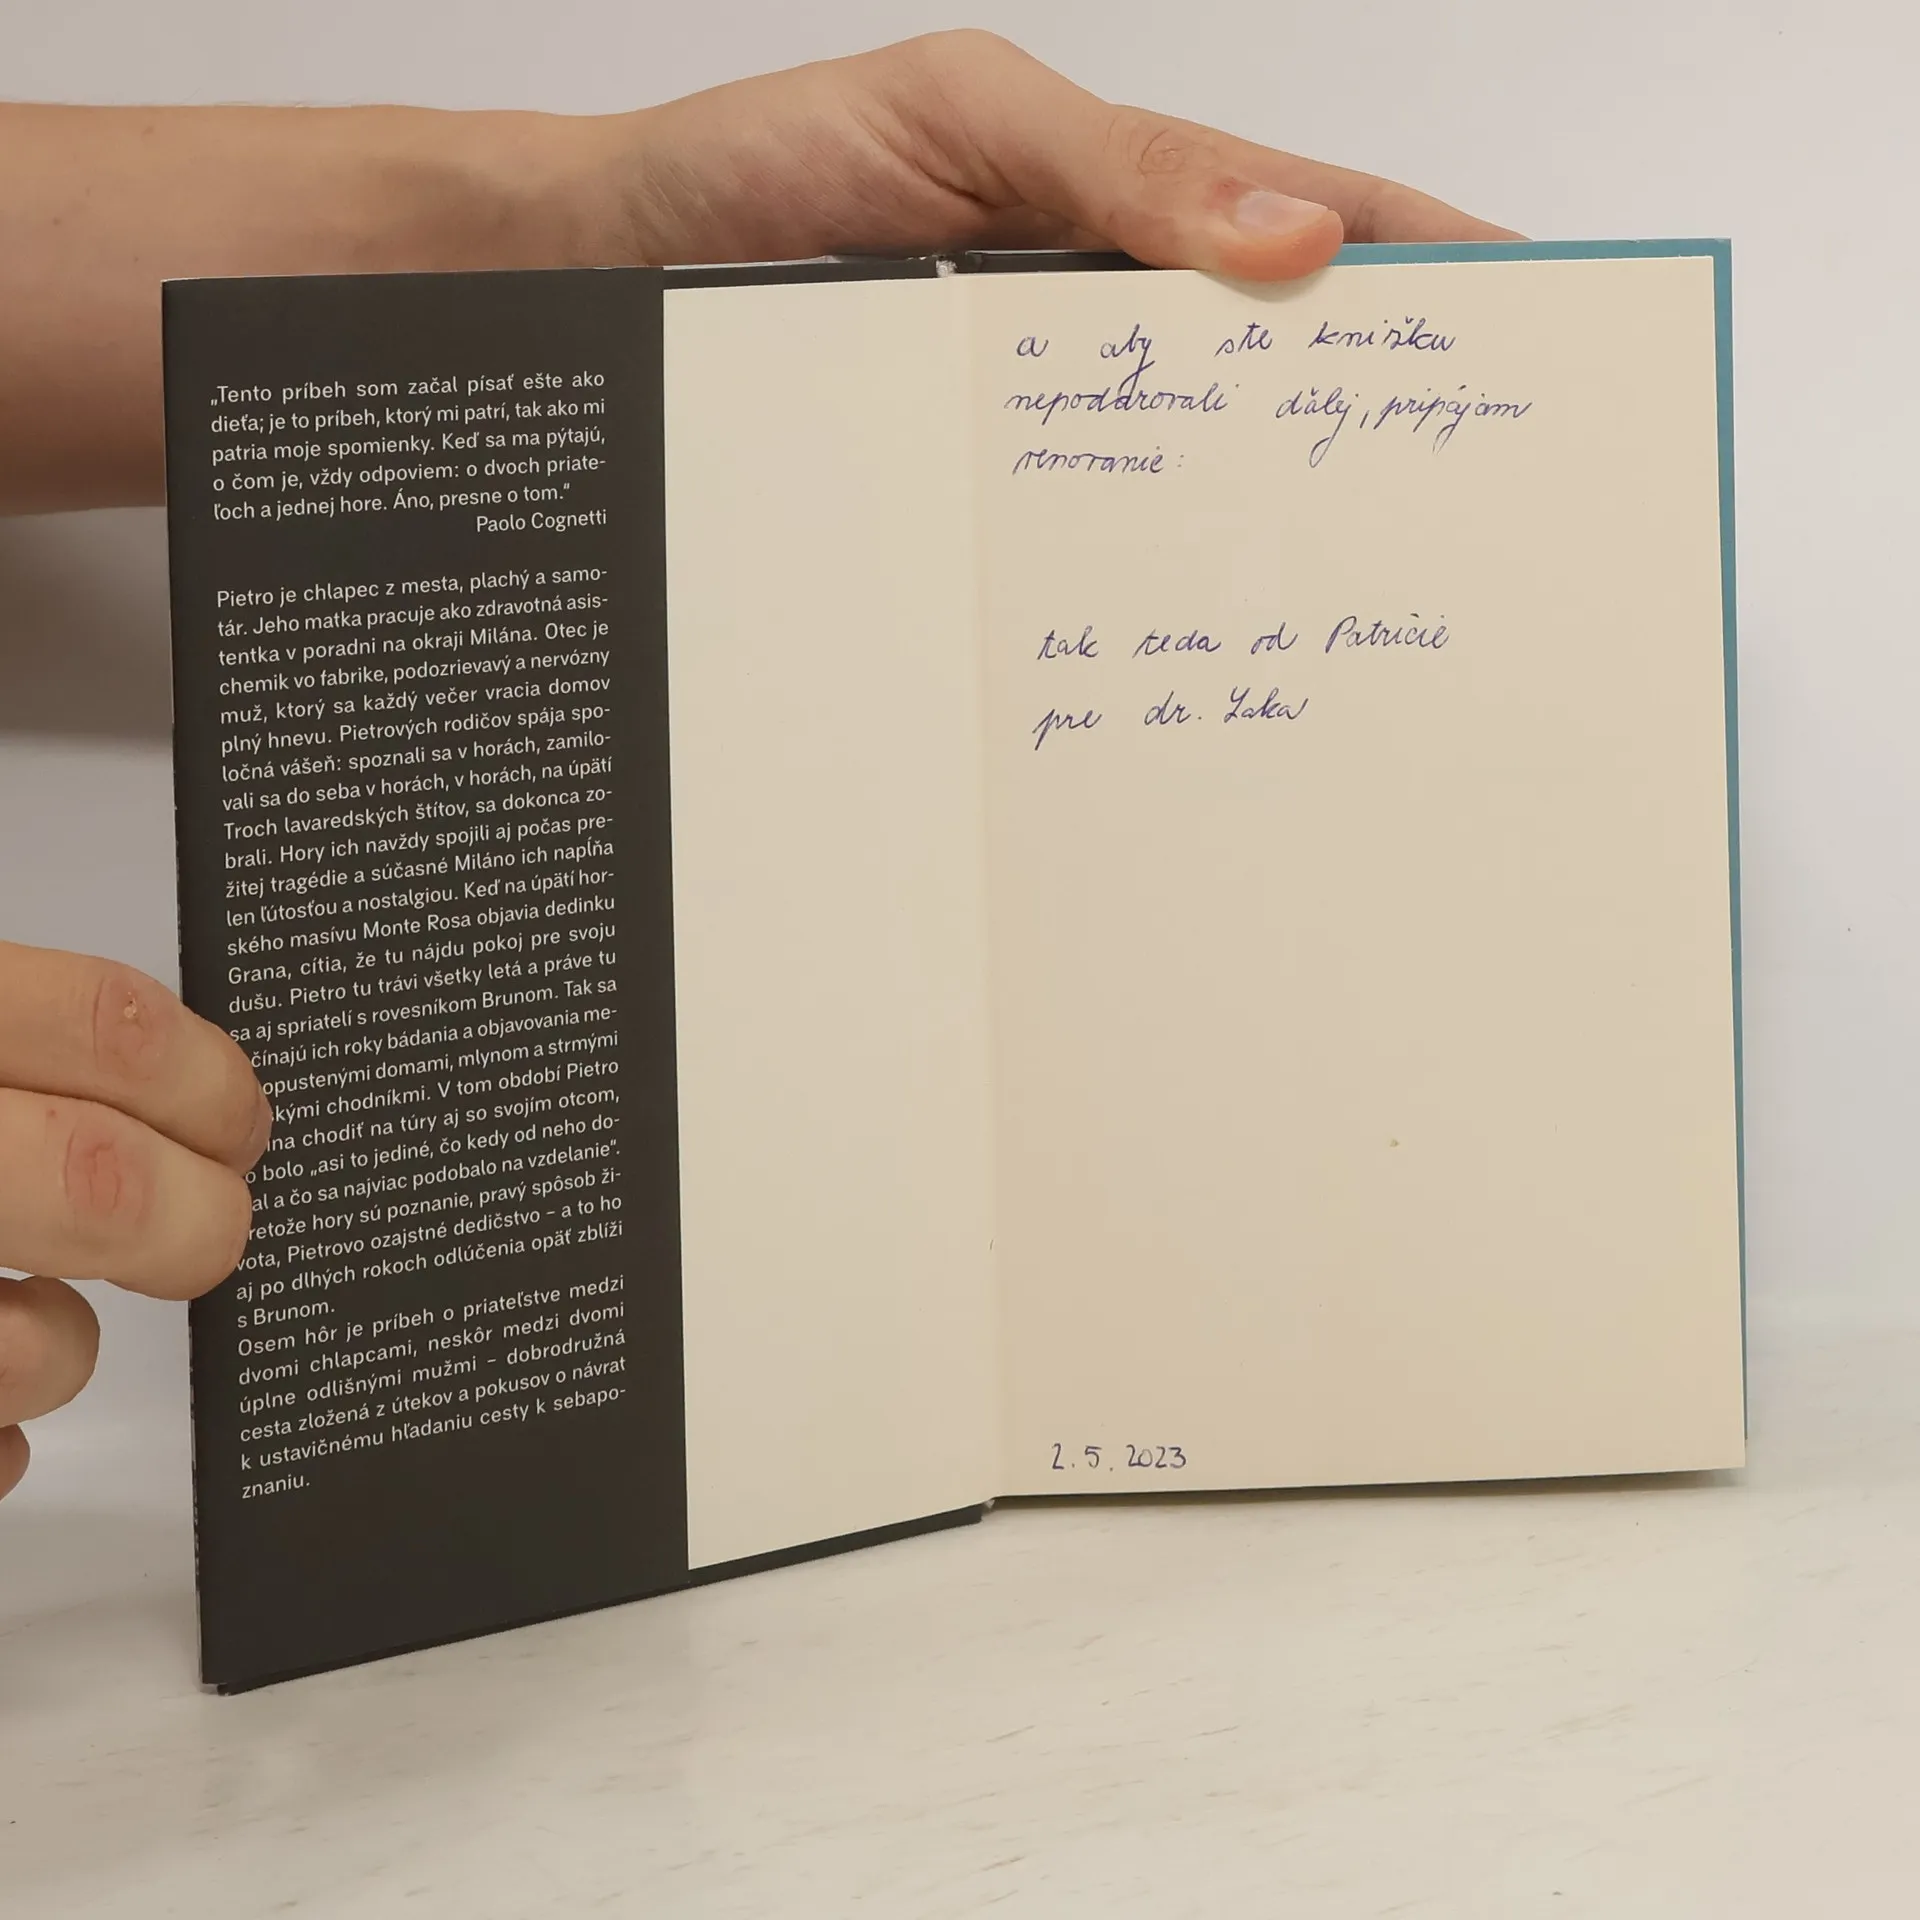 „Tento príbeh som začal písať ešte ako
dieťa; je to príbeh, ktorý mi patrí, tak ako mi
patria moje spomienky. Keď sa ma pýtajú,
o čom je, vždy odpoviem: o dvoch priate-
ľoch a jednej hore. Áno, presne o tom.“
Paolo Cognetti
Pietro je chlapec z mesta, plachý a samo-
tár. Jeho matka pracuje ako zdravotná asis-
tentka v poradni na okraji Milána. Otec je
chemik vo fabrike, podozrievavý a nervózny
muž, ktorý sa každý večer vracia domov
plný hnevu. Pietrových rodičov spája spo-
ločná vášeň: spoznali sa v horách, zamilo-
vali sa do seba v horách, v horách, na úpätí
Troch lavaredských štítov, sa dokonca zo-
brali. Hory ich navždy spojili aj počas pre-
žitej tragédie a súčasné Miláno ich napĺňa
len ľútosťou a nostalgiou. Keď na úpätí hor-
ského masívu Monte Rosa objavia dedinku
Grana, cítia, že tu nájdu pokoj pre svoju
dušu. Pietro tu trávi všetky letá a práve tu
sa aj spriatelí s rovesníkom Brunom. Tak sa
čínajú ich roky bádania a objavovania me-
opustenými domami, mlynom a strmými
skými chodníkmi. V tom období Pietro
ína chodiť na túry aj so svojím otcom,
o bolo „asi to jediné, čo kedy od neho do-
al a čo sa najviac podobalo na vzdelanie“.
retože hory sú poznanie, pravý spôsob ži-
vota, Pietrovo ozajstné dedičstvo – a to ho
aj po dlhých rokoch odlúčenia opäť zblíži
s Brunom.
Osem hôr je príbeh o priateľstve medzi
dvomi chlapcami, neskôr medzi dvomi
úplne odlišnými mužmi – dobrodružná
cesta zložená z útekov a pokusov o návrat
k ustavičnému hľadaniu cesty k sebapo-
znaniu.
a aby ste knižku
nepodarovali ďalej, pripájam
venovanie:
tak teda od Patrície
pre dr. Laka
2.5.2023